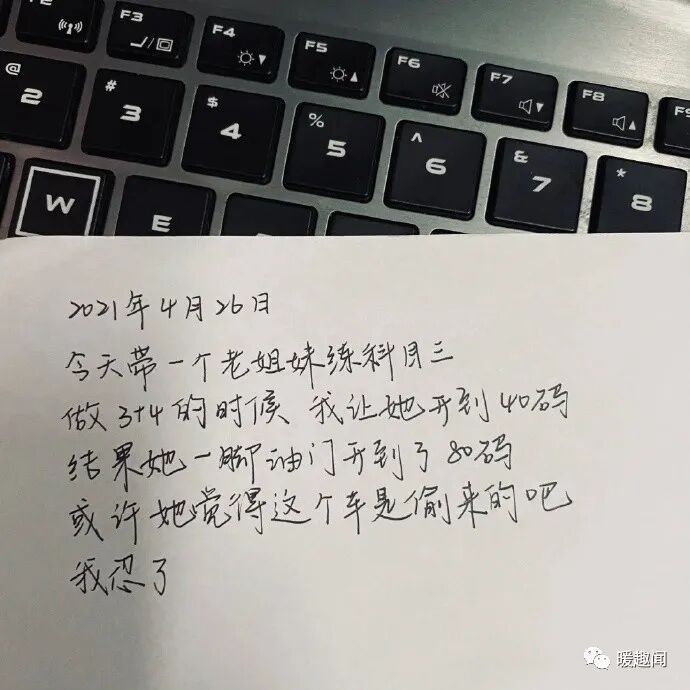 F2 F3 F4 F5 F6 F7 F8 F9
@ # $ % ^ & *
2 3 4 5 6 7 8
W E
2021年4月26日
今天带一个老姐妹练科目三
做3+4的时候 我让她开到40码
结果她一脚油门开到了80码
或许她觉得这个车是偷来的吧
我忍了
暖趣闻